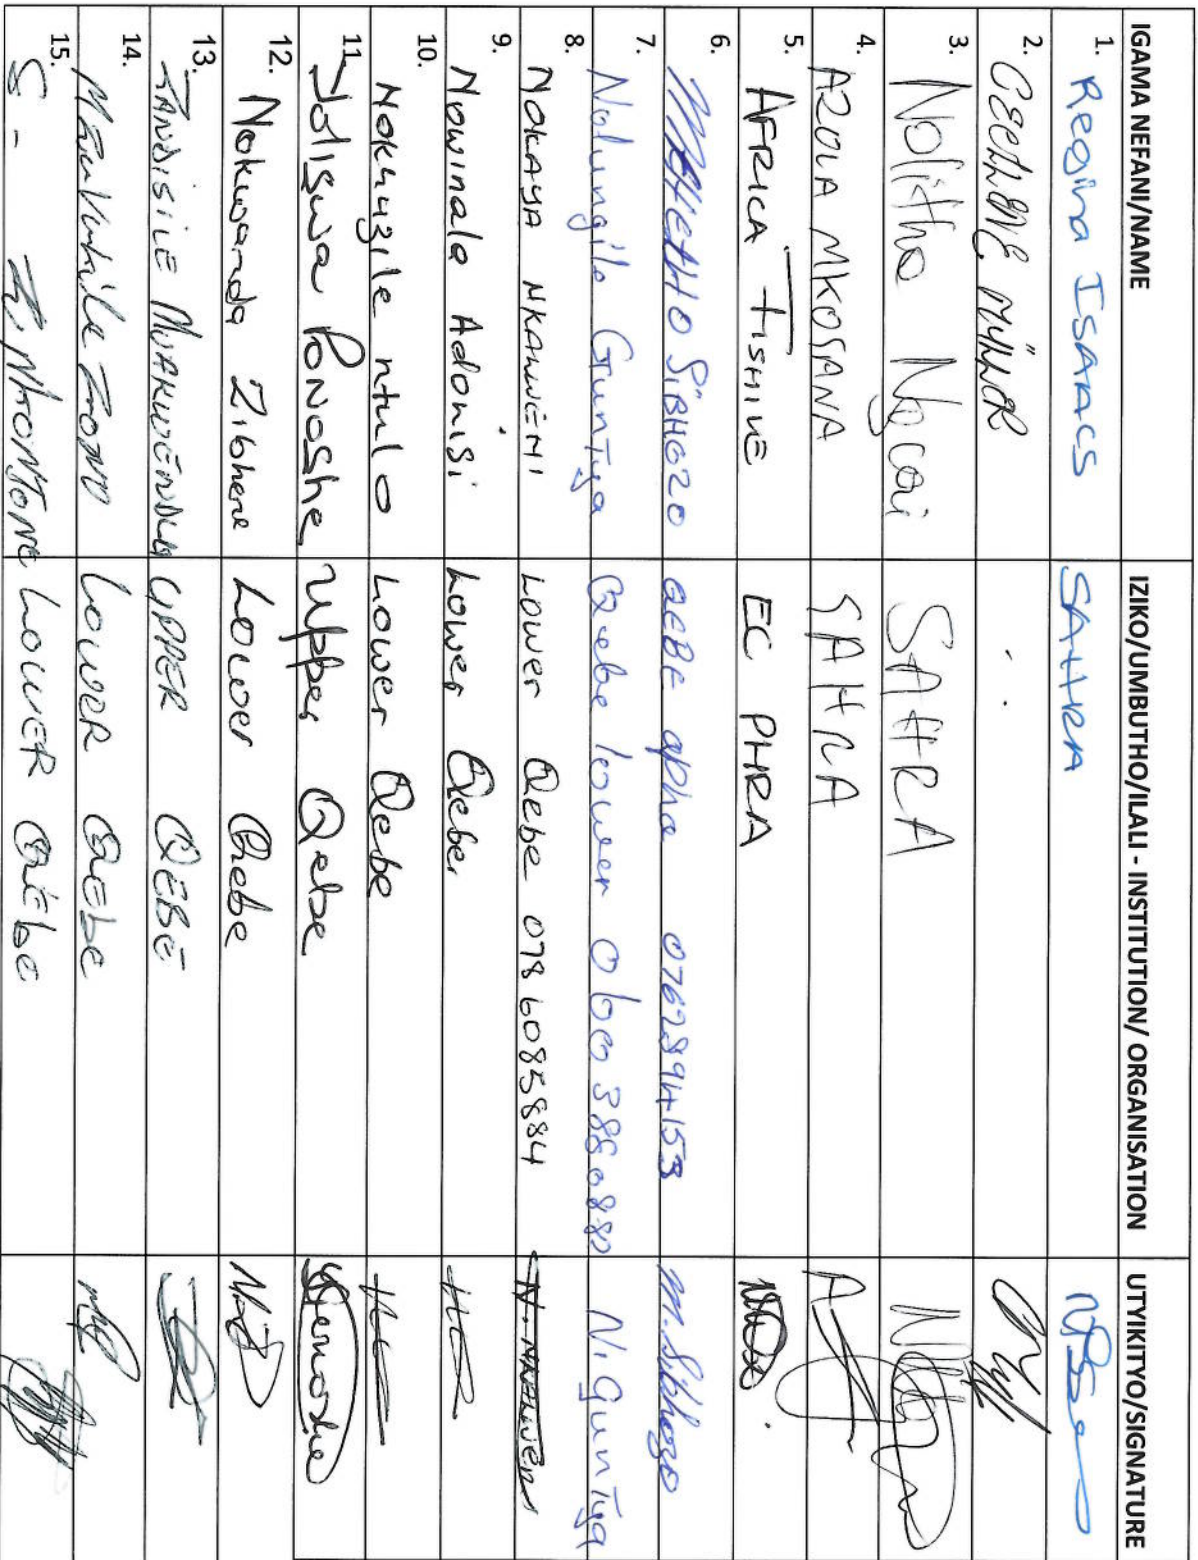 IGAMA NEFANI/NAME IZIKO/UMBUTHO/ILALI - INSTITUTION/ ORGANISATION UTYIKITYO/SIGNATURE
1. Regina ISAACS SAHRA
2. MÜLLER
3. Nolitha Ngcai SAHRA
4. AZOLA MKOSANA SAHRA
5. AFRICA TISHIWE EC PHRA
6. SIBHOZO QEBE 0762894153 M. Sibhozo
7. Nolungile Guntya Qebe lower 0603880880 N. Guntya
8. NOKAYA NKAWENI LOWER Qebe 0786085884
9. Nowinala Adonisi Lower Qebe
10. Nokuzile ntulo Lower Qebe
11. Joliswa Ponoshe Upper Qebe
12. Nokwanda Zibhene Lower Qhebe
13. TANDISILE UPPER QEBE
14. LOWER QEbE
15. S - LOWER QEbE